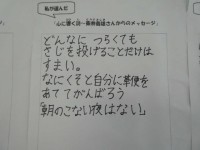 私が選んだ
「心に響く日一番教低語さんからのメッセージ」
どんなに つらくても
さじを投げることだけは
すまい。
なにくそと自分に革便を
あててがんばろう
「朝のこない夜はない」